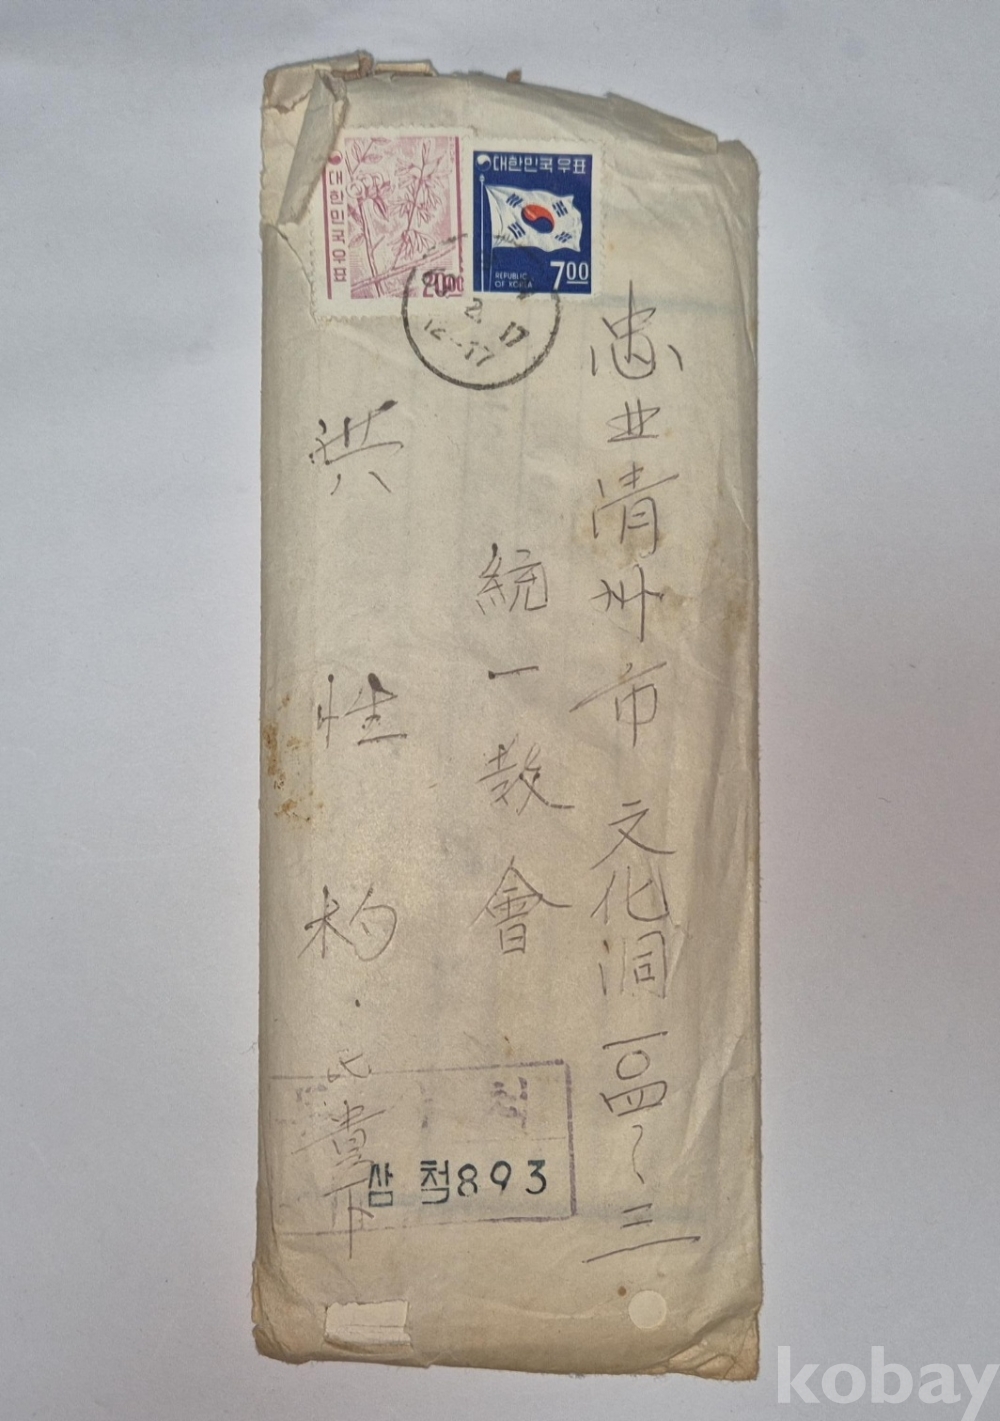 대한민국우표
20.00
대한민국 우표
REPUBLIC
OF KOREA
7.00
2. 17
12-17
忠北清州市 文化洞 一〇四~三
統一敎會
洪性杓 氏 貴下
삼척893
kobay